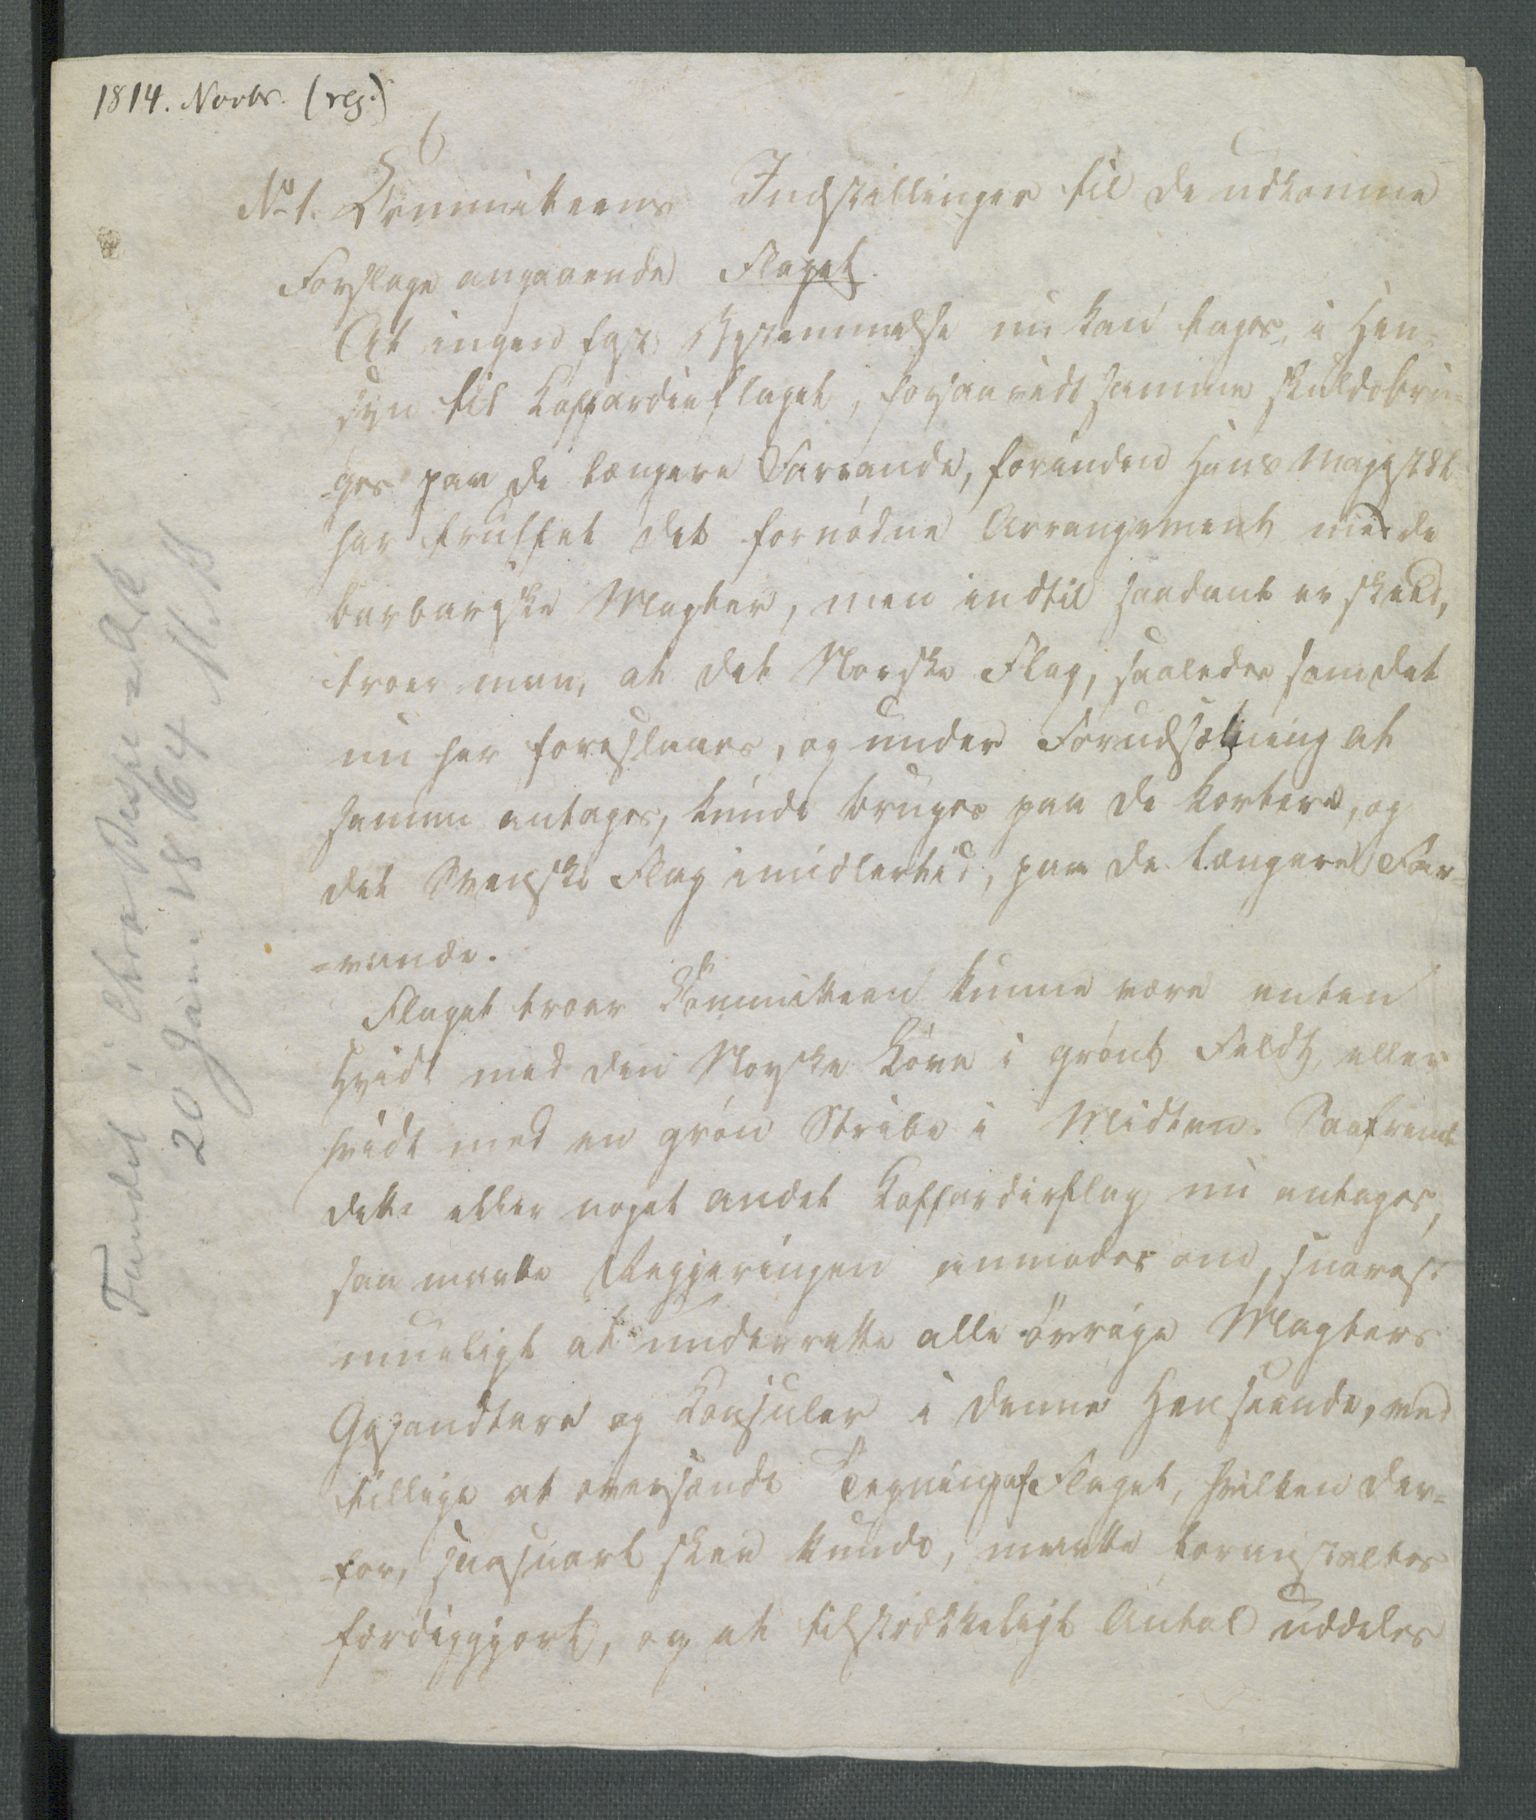 1814. Novbr. (reg.)
6
No 1. Committeens Indstillinger til de udkomne
Forslage angaaende Flaget.
At ingen fast Bestemmelse nu kan tages, i Hen-
syn til Koffardieflaget, forsaavidt samme skulde bru-
ges paa de længere Farvande, forinden Hans Majestæt
har truffet det fornødne Arrangement med de
barbariske Magter, men indtil saadant er skeed,
troer man, at det Norske Flag, saaledes som det
nu her foreslaaes, og under Forudsætning at
samme antages, kunde bruges paa de kortere, og
det Svenske Flag imidlertid, paa de længere Far-
-vande.
Flaget troer Committeen kunne være enten
Hvidt med den Norske Løve i grønt Feldt, eller
hvidt med en grøn Stribe i Midten. Saafremt
dette eller noget andet Koffardieflag nu antages,
saa maatte Regjeringen anmodes om, snarest
mueligt at underrette alle øvrige Magters
Gesandtere og Consuler i denne Henseende, ved
tillige at oversende Tegning af Flaget, hvilken der-
for, saasnart skee kunde, maatte foranstaltes
færdiggjort, og et tilstrækkeligt Antal uddeles
Fundet i Chra Bispe-Ark
20 Jan. 1864